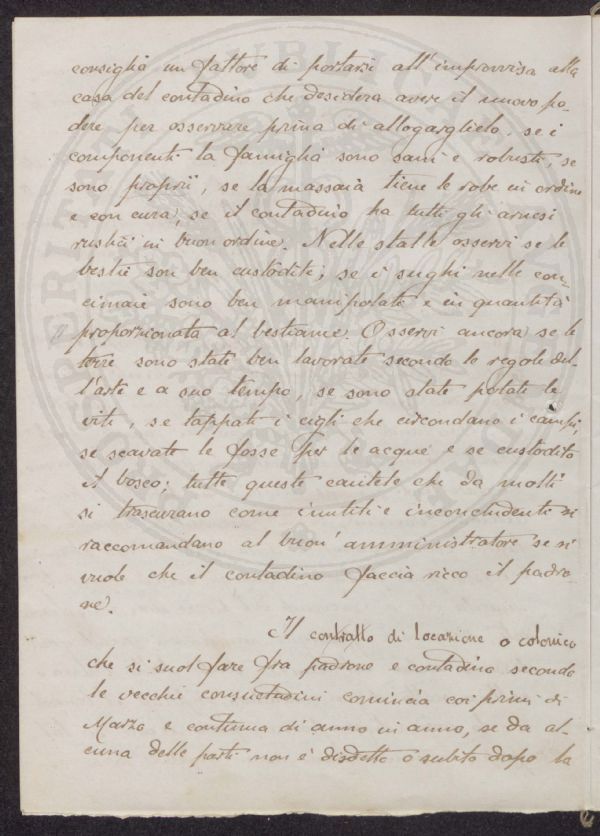 consiglia un fattore di portarsi all'improvviso alla
casa del contadino che desidera avere il nuovo po-
dere per osservare prima di allogarglielo, se i
componenti la famiglia sono sani e robusti, se
sono proprii, se la massaia tiene le robe in ordine
e con cura, se il contadino ha tutti gli arnesi
rustici in buon ordine. Nelle stalle osservi se le
bestie son ben custodite, se i sughi nelle con-
cimaie sono ben manipolate e in quantità
proporzionata al bestiame. Osservi ancora se le
terre sono state ben lavorate secondo le regole del-
l'arte e a suo tempo, se sono state potate le
viti, se tappati i cigli che circondano i campi,
se scavate le fosse per le acque e se custodito
il bosco; tutte queste cautele che da molti
si trascurano come inutili e inconcludenti si
raccomandano al buon' amministratore se si
vuole che il contadino faccia ricco il padro-
ne.
Il contratto di locazione o colonico
che si suol fare fra padrone e contadino secondo
le vecchie consuetudini comincia coi primi di
Marzo e continua di anno in anno, se da al-
cuna delle parti non è disdetto o subito dopo la
PROSPERITATI PUBLICAE AUGENDAE